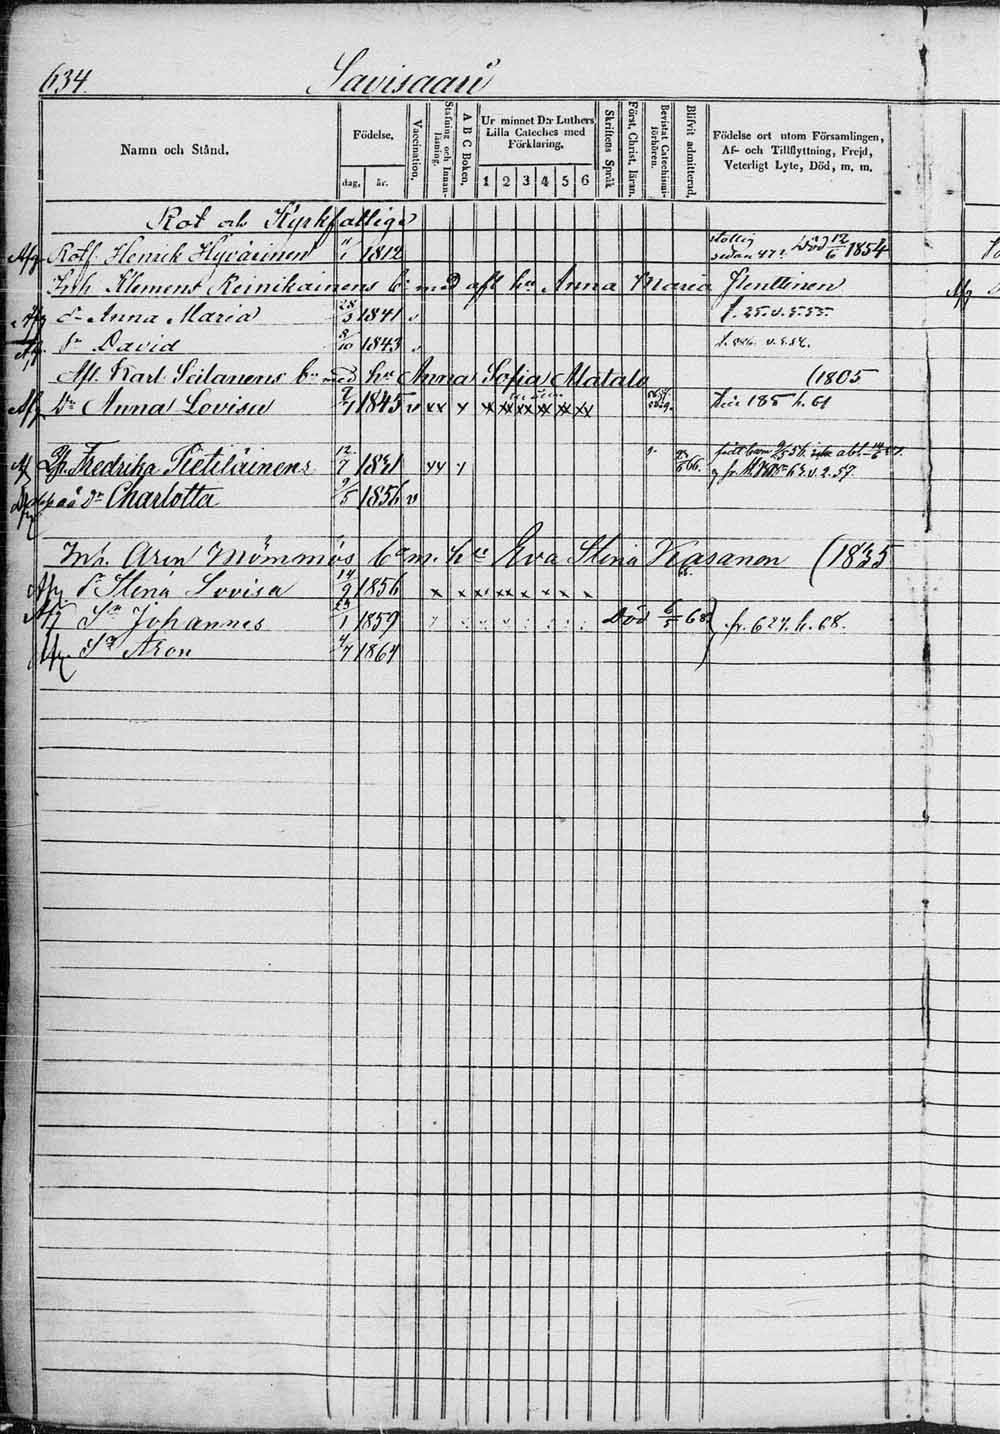 634.
Savisaari
Namn och Stånd.
Födelse.
dag. år.
Vaccination.
Stafning och Innan-läsning.
A B C Boken.
Ur minnet D:r Luthers Lilla Cateches med Förklaring.
1 2 3 4 5 6
Skriftens Språk
Först. Christ. läran.
Bevistat Catechismi-förhören.
Blifvit admitterad.
Födelse ort utom Församlingen, Af- och Tillflyttning, Frejd, Veterligt Lyte, Död, m. m.
Rot och Kyrkfattige
Afg Rotf. Henrick Hyvärinen 11/1 1812 sedan 47 Död 12/6 1854
Inh. Klemens Reinikainens b:n med afl hu Anna Maria Henttinen
Afg dr Anna Maria 28/3 1841 v
Afg Sn David 8/10 1843 v
Afl. Karl Seilanens b:n med hu Anna Sofia Matala (1805
Afg Dr Anna Lovisa 2/1 1845 v xx x x x x x x x x 185 h. 61
Fredrika Pietiläinens 12/7 1831 xx 66. 63. v. 2. 57.
oä dr Charlotta 9/5 1856 v
Inh. Aron Mömmös b:n m. h:u Eva Stina Kasanen (1835
Afg. dr Stina Lovisa 14/9 1856 x x x x x x x x x
Afg Sn Johannes 23/1 1859 Död 6/5 68 fr. 627. h. 68.
Afg. Sn Aron 4/7 1864